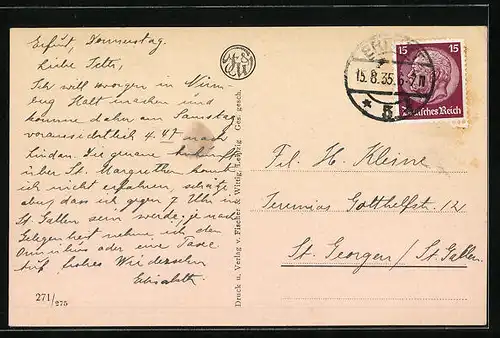 Erfurt, Donnerstag.
Liebe
Ich will morgen in Nürn-
berg Halt machen und
komme daher am Samstag
voraussichtlich 4.47 nach
Lindau. Die genaue Ankunft
über St. Margrethen konnte
ich nicht erfahren, schätze
aber, dass ich gegen 7 Uhr in
St. Gallen sein werde; je nach
Gelegenheit nehme ich den
Omnibus oder eine Taxe
Auf frohes Wiedersehn
Elisabeth
271/275
Druck u. Verlag v. Fischer & Wittig, Leipzig Ges. gesch.
15.8.35
5
15 15
Deutsches Reich
Frl. H. Kleine
Jeremias Gotthelfstr. 12
St. Georgen / St. Gallen.